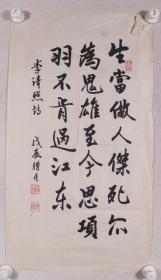 生當做人傑死亦
為鬼雄至今思項
羽不肯過江东
李清照詩
戊辰腊月